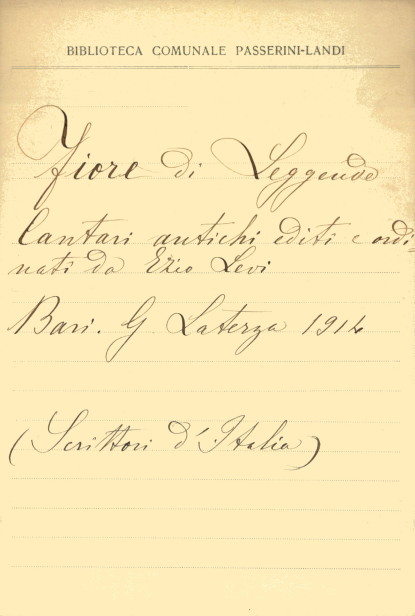 BIBLIOTECA COMUNALE PASSERINI-LANDI
Fiore di Leggende
Cantari antichi editi e ordi=
nati da Ezio Levi
Bari. G Laterza 1914
(Scrittori d'Italia)